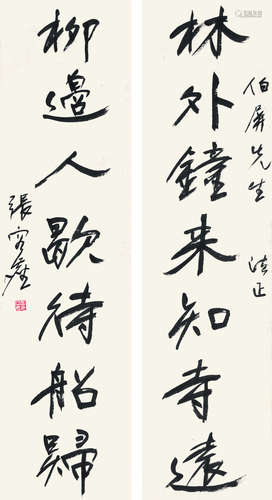 林外鐘来知寺遠
伯屏先生 法正
柳邊人歇待船歸
張宮